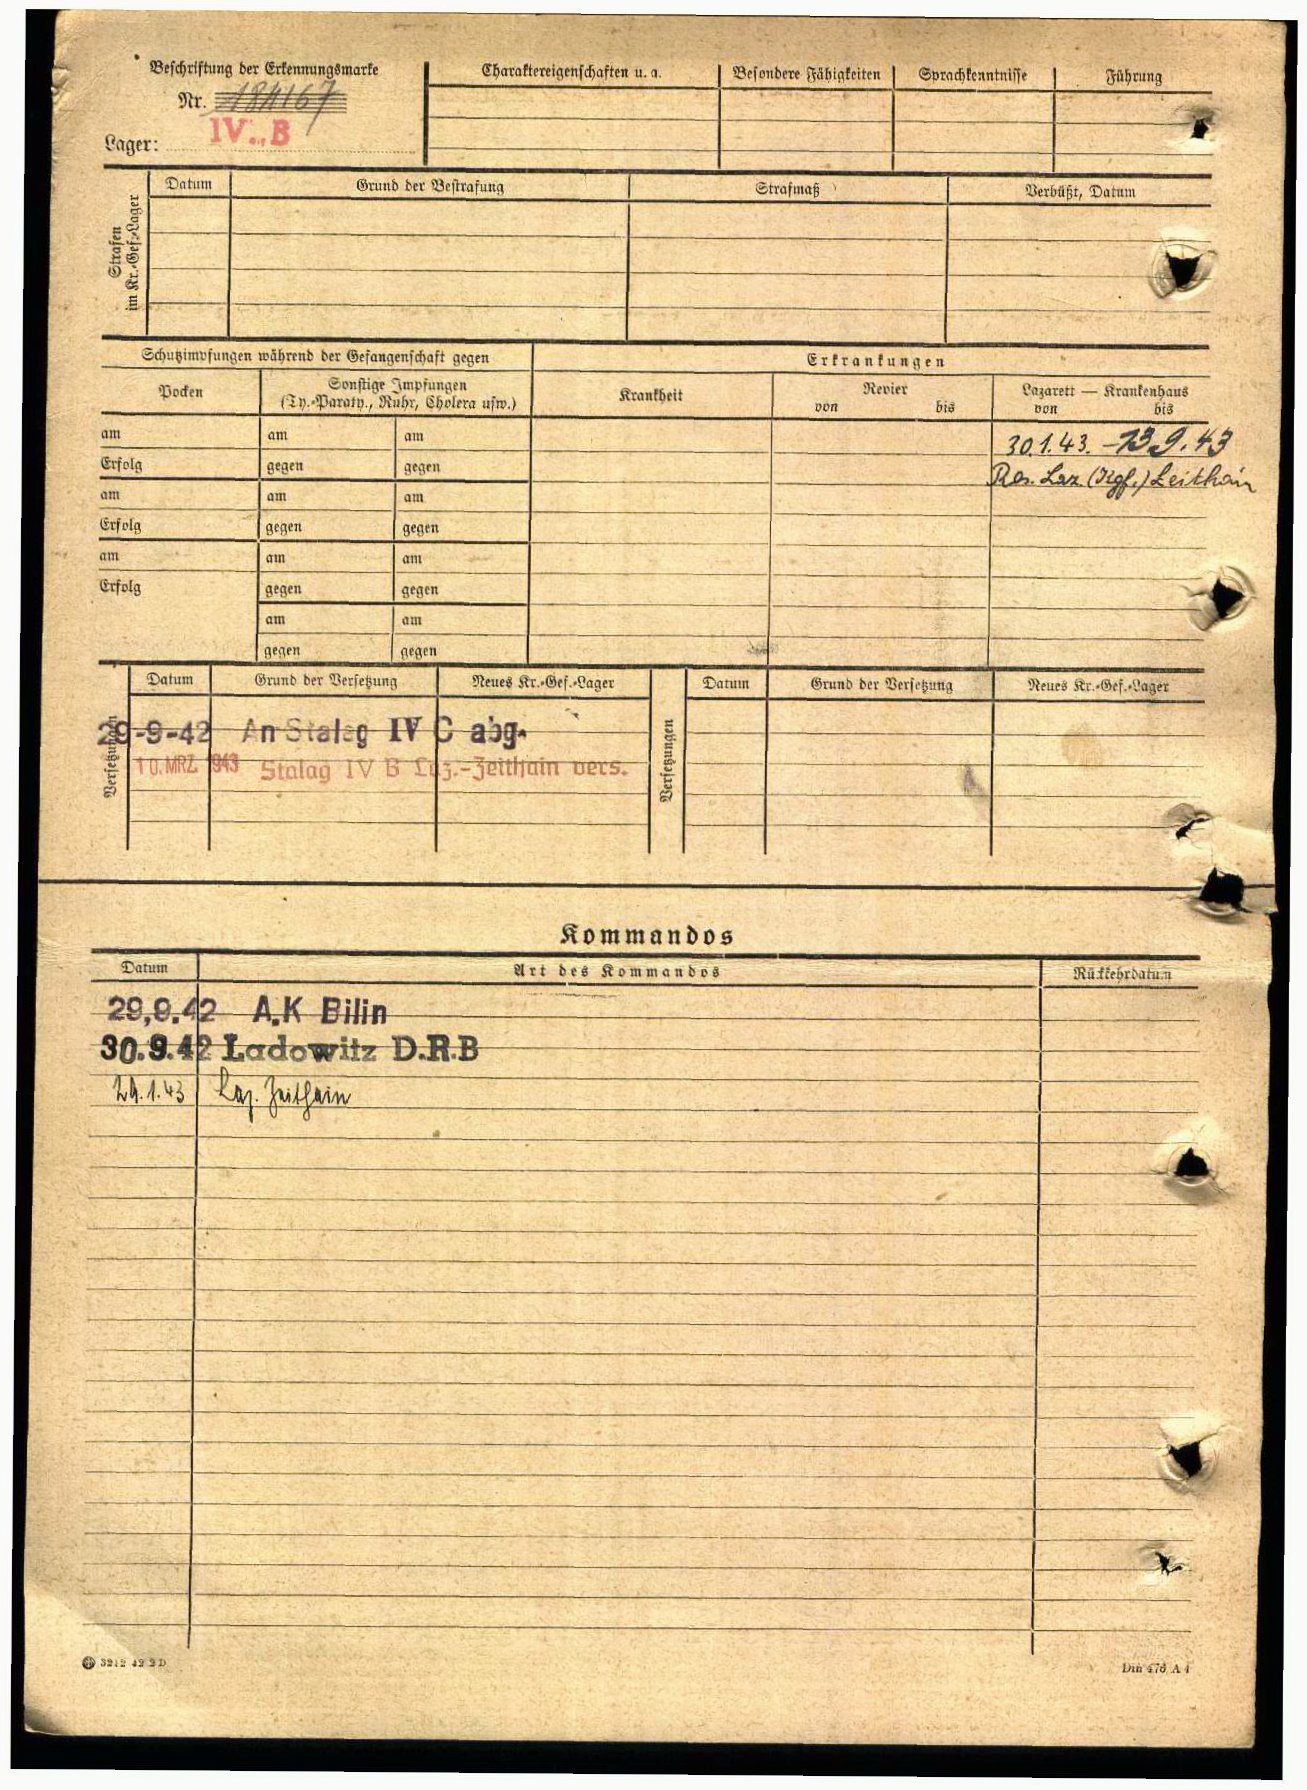 Beschriftung der Erkennungsmarke
Nr. 184167
Lager: IV B
Charaktereigenschaften u. a.
Besondere Fähigkeiten
Sprachkenntnisse
Führung
Strafen im Kr.-Gef.-Lager
Datum
Grund der Bestrafung
Strafmaß
Verbüßt, Datum
Schutzimpfungen während der Gefangenschaft gegen
Erkrankungen
Pocken
Sonstige Impfungen
(Ty.-Paraty., Ruhr, Cholera usw.)
Krankheit
Revier
von bis
Lazarett — Krankenhaus
von bis
am am am
30.1.43. - 13.9.43
Erfolg gegen gegen
Res. Laz. (Kgf.) Zeithain
am am am
Erfolg gegen gegen
am am am
Erfolg gegen gegen
am am
gegen gegen
Versetzungen
Datum Grund der Versetzung Neues Kr.-Gef.-Lager
29-9-42 An Stalag IV C abg.
10. MRZ. 1943 Stalag IV B Laz.-Zeithain vers.
Versetzungen
Datum Grund der Versetzung Neues Kr.-Gef.-Lager
Kommandos
Datum Art des Kommandos Rückkehrdatum
29.9.42 A.K Bilin
30.9.42 Ladowitz D.R.B
29.1.43 Laz. Zeithain
3212 42 2 D
Din 476 A 4